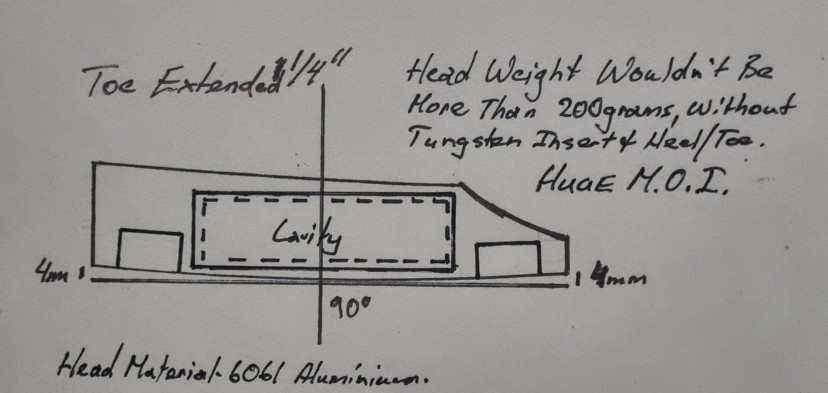 Toe Extended 1/4"
Head Weight Wouldn't Be
More Than 200grams, Without
Tungsten Insert & Heel/Toe.
HUGE M.O.I.
Cavity
4mm
4mm
90°
Head Material-6061 Aluminium.